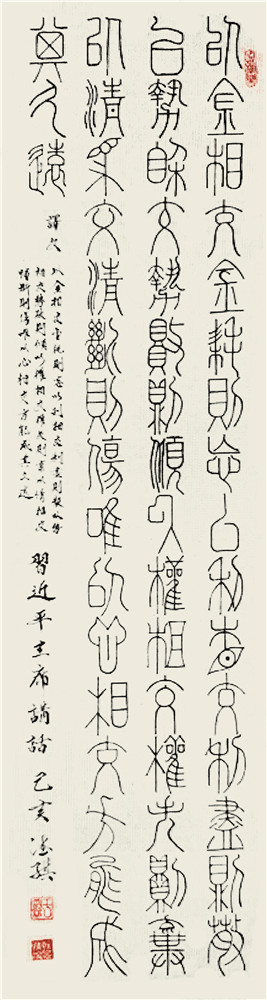 以金相交金耗則忘以利相交利盡則散
以勢相交勢敗則傾以權相交權失則棄
以情相交情斷則傷唯以心相交方能成
其久遠
譯文
以金相交金耗則忘以利相交利盡則散以勢
相交勢敗則傾以權相交權失則棄以情相交
情斷則傷唯以心相交方能成其久遠
習近平主席講話 己亥